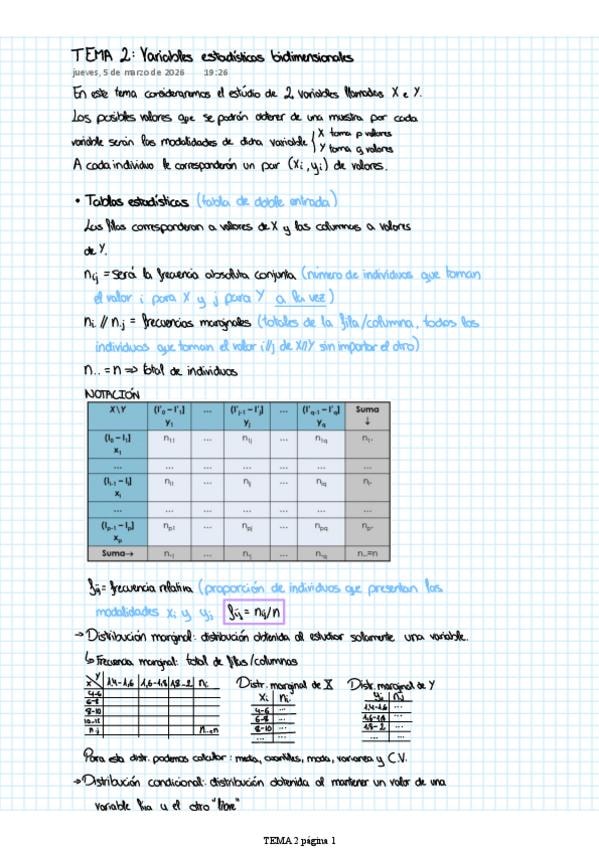 TEMA 2: Variables estadísticas bidimensionales
jueves, 5 de marzo de 2026 19:26
En este tema consideraremos el estudio de 2 variables llamadas X e Y.
Los posibles valores que se podrán obtener de una muestra por cada
variable serán las modalidades de dicha variable { X toma p valores
Y toma q valores
A cada individuo le corresponderán un par (xi, yi) de valores.
• Tablas estadísticas (tabla de doble entrada)
Las filas corresponderan a valores de X y las columnas a valores
de Y.
nij = será la frecuencia absoluta conjunta (número de individuos que toman
el valor i para X y j para Y a la vez)
ni. // n.j = frecuencias marginales (totales de la fila/columna, todos los
individuos que toman el valor i//j de X//Y sin importar el otro)
n.. = n => total de individuos
NOTACIÓN
X\Y (I'0 – I'1] ... (I'j-1 – I'j] ... (I'q-1 – I'q] Suma
y1 yj yq ↓
(I0 – I1] n11 ... n1j ... n1q n1.
x1
... ... ... ... ... ... ...
(Ii-1 – Ii] ni1 ... nij ... niq ni.
xi
... ... ... ... ... ... ...
(Ip-1 – Ip] np1 ... npj ... npq np.
xp
Suma→ n.1 ... n.j ... n.q n..=n
fij = frecuencia relativa (proporción de individuos que presentan las
modalidades xi y yj) fij = nij/n
→ Distribución marginal: distribución obtenida al estudiar solamente una variable.
↳ Frecuencia marginal: total de filas/columnas
X Y 1,4-1,6 1,6-1,8 1,8-2 ni. Distr. marginal de X Distr. marginal de Y
4-6 xi ni. yj n.j
6-8 4-6 ... 1,4-1,6 ...
8-10 6-8 ... 1,6-1,8 ...
10-12 8-10 ... 1,8-2 ...
n.j n..=n ... ... ... ...
Para esta distr. podemos calcular: media, cuantiles, moda, varianza y C.V.
→ Distribución condicional: distribución obtenida al mantener un valor de una
variable fija y el otro "libre"
TEMA 2 página 1